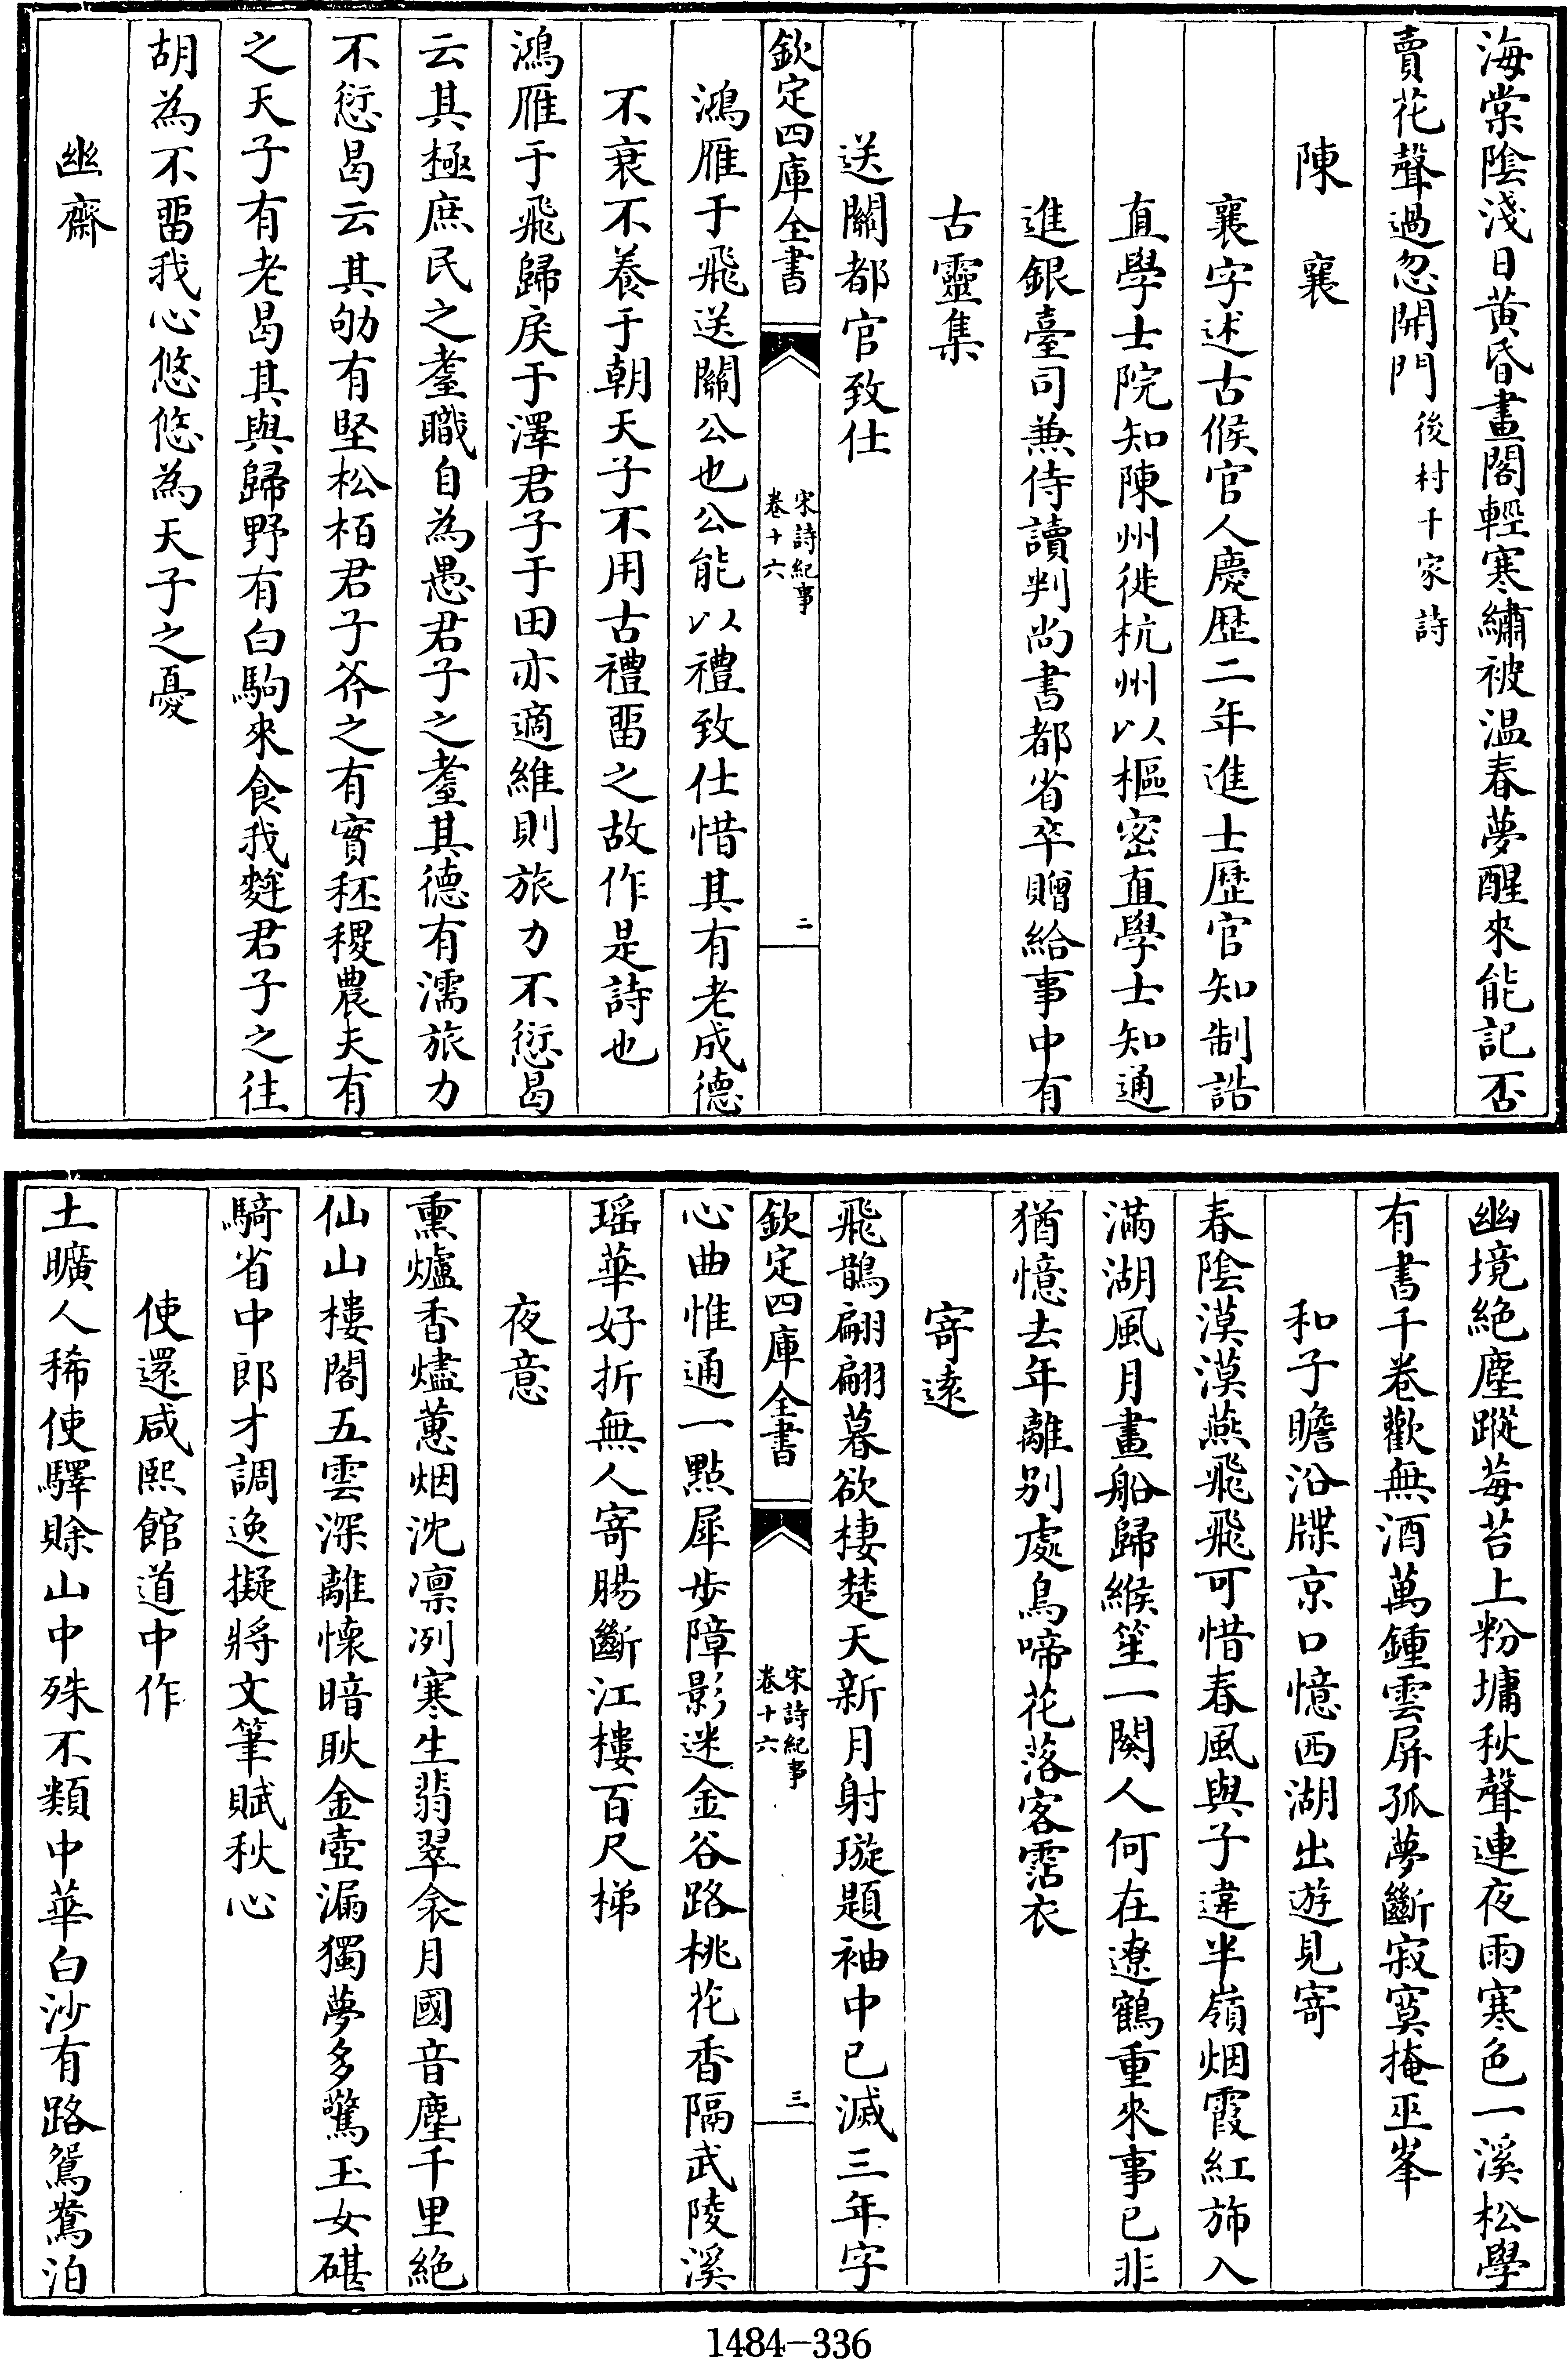 海棠陰淺日黄昏畫閣輕寒繡被温春夢醒來能記否
賣花聲過忽開門後村千家詩
陳襄
襄字述古候官人慶歴二年進士歴官知制誥
直學士院知陳州徙杭州以樞密直學士知通
進銀臺司兼侍讀判尚書都省卒贈給事中有
古靈集
送關都官致仕
欽定四庫全書
宋詩紀事
卷十六
二
鴻雁于飛送關公也公能以禮致仕惜其有老成德
不衰不養于朝天子不用古禮畱之故作是詩也
鴻雁于飛歸戾于澤君子于田亦適維則旅力不愆曷
云其極庶民之耋職自為愚君子之耋其德有濡旅力
不愆曷云其劬有堅松栢君子斧之有實秠稷農夫有
之天子有老曷其與歸野有白駒來食我麰君子之往
胡為不畱我心悠悠為天子之憂
幽齋
幽境絶塵蹤莓苔上粉墉秋聲連夜雨寒色一溪松學
有書千卷歡無酒萬鍾雲屏孤夢斷寂寞掩巫峯
和子瞻沿牒京口憶西湖出遊見寄
春陰漠漠燕飛飛可惜春風與子違半嶺烟霞紅斾入
滿湖風月畫船歸緱笙一闋人何在遼鶴重來事已非
猶憶去年離别處鳥啼花落客霑衣
寄遠
飛鵲翩翩暮欲棲楚天新月射璇題袖中已滅三年字
欽定四庫全書
宋詩紀事
卷十六
三
心曲惟通一點犀步障影迷金谷路桃花香隔武陵溪
瑶華好折無人寄腸斷江樓百尺梯
夜意
熏爐香燼蕙烟沈凛冽寒生翡翠衾月國音塵千里絶
仙山樓閣五雲深離懷暗耿金壺漏獨夢多驚玉女碪
騎省中郎才調逸擬將文筆賦秋心
使還咸熙館道中作
土曠人稀使驛賖山中殊不類中華白沙有路鴛鴦泊
1484-336